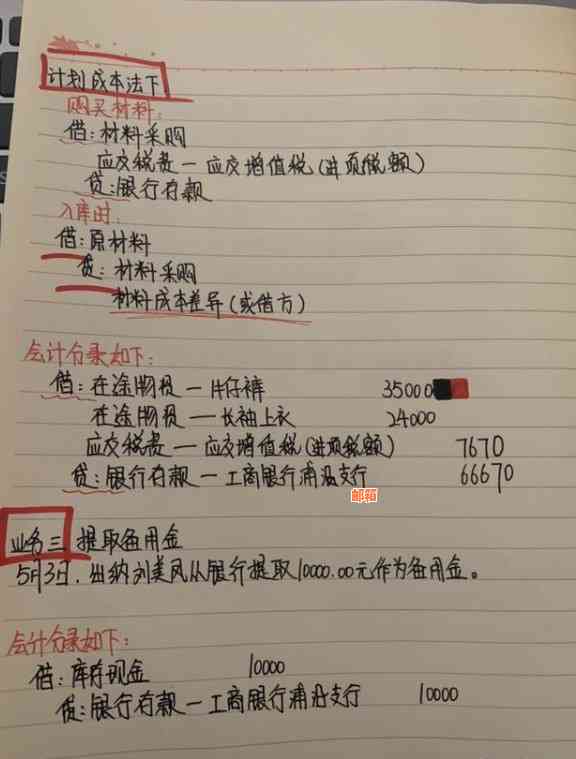 计划成本法下
购买材料:
借:材料采购
应交税费—应交增值税(进项税额)
贷:银行存款
入库时:
借:原材料
贷:材料采购
材料成本差异(或借方)
会计分录如下:
借:在途物资—牛仔裤 35000
在途物资—长袖上衣 24000
应交税费—应交增值税(进项税额) 7670
贷:银行存款—工商银行浦沿支行 66670
邮箱
业务三 提取备用金
5月3日,出纳刘美凤从银行提取10000.00元作为备用金。
会计分录如下:
借:库存现金 10000
贷:银行存款—工商银行浦沿支行 10000